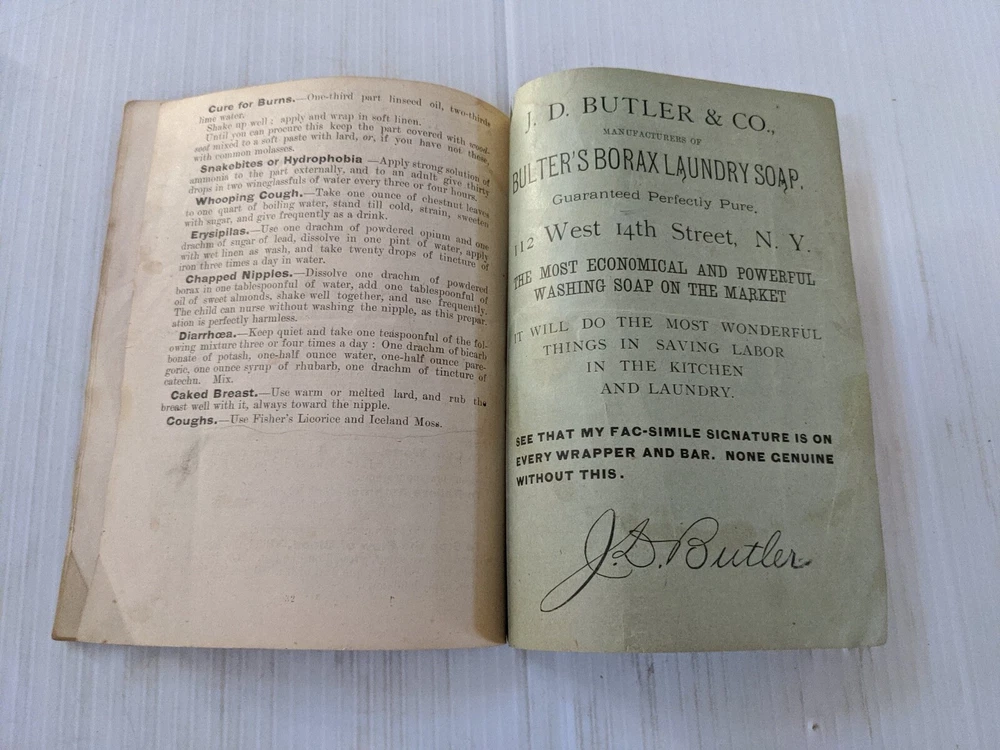 Cure for Burns.—One-third part linseed oil, two-thirds
lime water.
Shake up well; apply and wrap in soft linen.
Until you can procure this keep the part covered with wood-
soot mixed to a soft paste with lard, or, if you have not these,
with common molasses.
Snakebites or Hydrophobia —Apply strong solution of
ammonia to the part externally, and to an adult give thirty
drops in two wineglassfuls of water every three or four hours.
Whooping Cough.—Take one ounce of chestnut leaves
to one quart of boiling water, stand till cold, strain, sweeten
with sugar, and give frequently as a drink.
Erysipilas.—Use one drachm of powdered opium and one
drachm of sugar of lead, dissolve in one pint of water, apply
with wet linen as wash, and take twenty drops of tincture of
iron three times a day in water.
Chapped Nipples.—Dissolve one drachm of powdered
borax in one tablespoonful of water, add one tablespoonful of
oil of sweet almonds, shake well together, and use frequently.
The child can nurse without washing the nipple, as this prepar-
ation is perfectly harmless.
Diarrhœa.—Keep quiet and take one teaspoonful of the fol-
owing mixture three or four times a day: One drachm of bicar
bonate of potash, one-half ounce water, one-half ounce pare-
goric, one ounce syrup of rhubarb, one drachm of tincture of
catechu. Mix.
Caked Breast.—Use warm or melted lard, and rub the
breast well with it, always toward the nipple.
Coughs.—Use Fisher's Licorice and Iceland Moss.
J. D. BUTLER & CO.,
MANUFACTURERS OF
BULTER'S BORAX LAUNDRY SOAP.
Guaranteed Perfectly Pure.
112 West 14th Street, N. Y.
THE MOST ECONOMICAL AND POWERFUL
WASHING SOAP ON THE MARKET
IT WILL DO THE MOST WONDERFUL
THINGS IN SAVING LABOR
IN THE KITCHEN
AND LAUNDRY.
SEE THAT MY FAC-SIMILE SIGNATURE IS ON
EVERY WRAPPER AND BAR. NONE GENUINE
WITHOUT THIS.
J. D. Butler